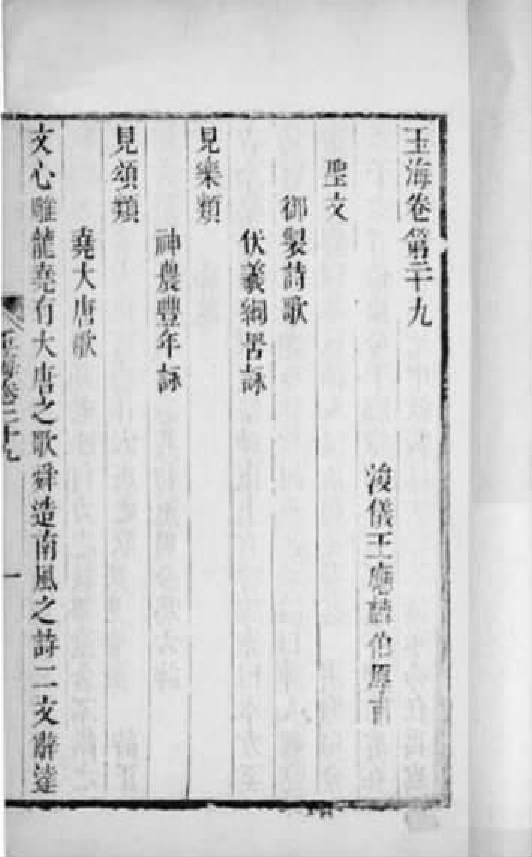 玉海卷第二十九
浚儀王應麟伯厚甫
聖文
御製詩歌
伏羲網罟詠
見樂類
神農豐年詠
見頌類
堯大唐歌
文心雕龍堯有大唐之歌舜造南風之詩二文辭達
玉海卷二十九
一